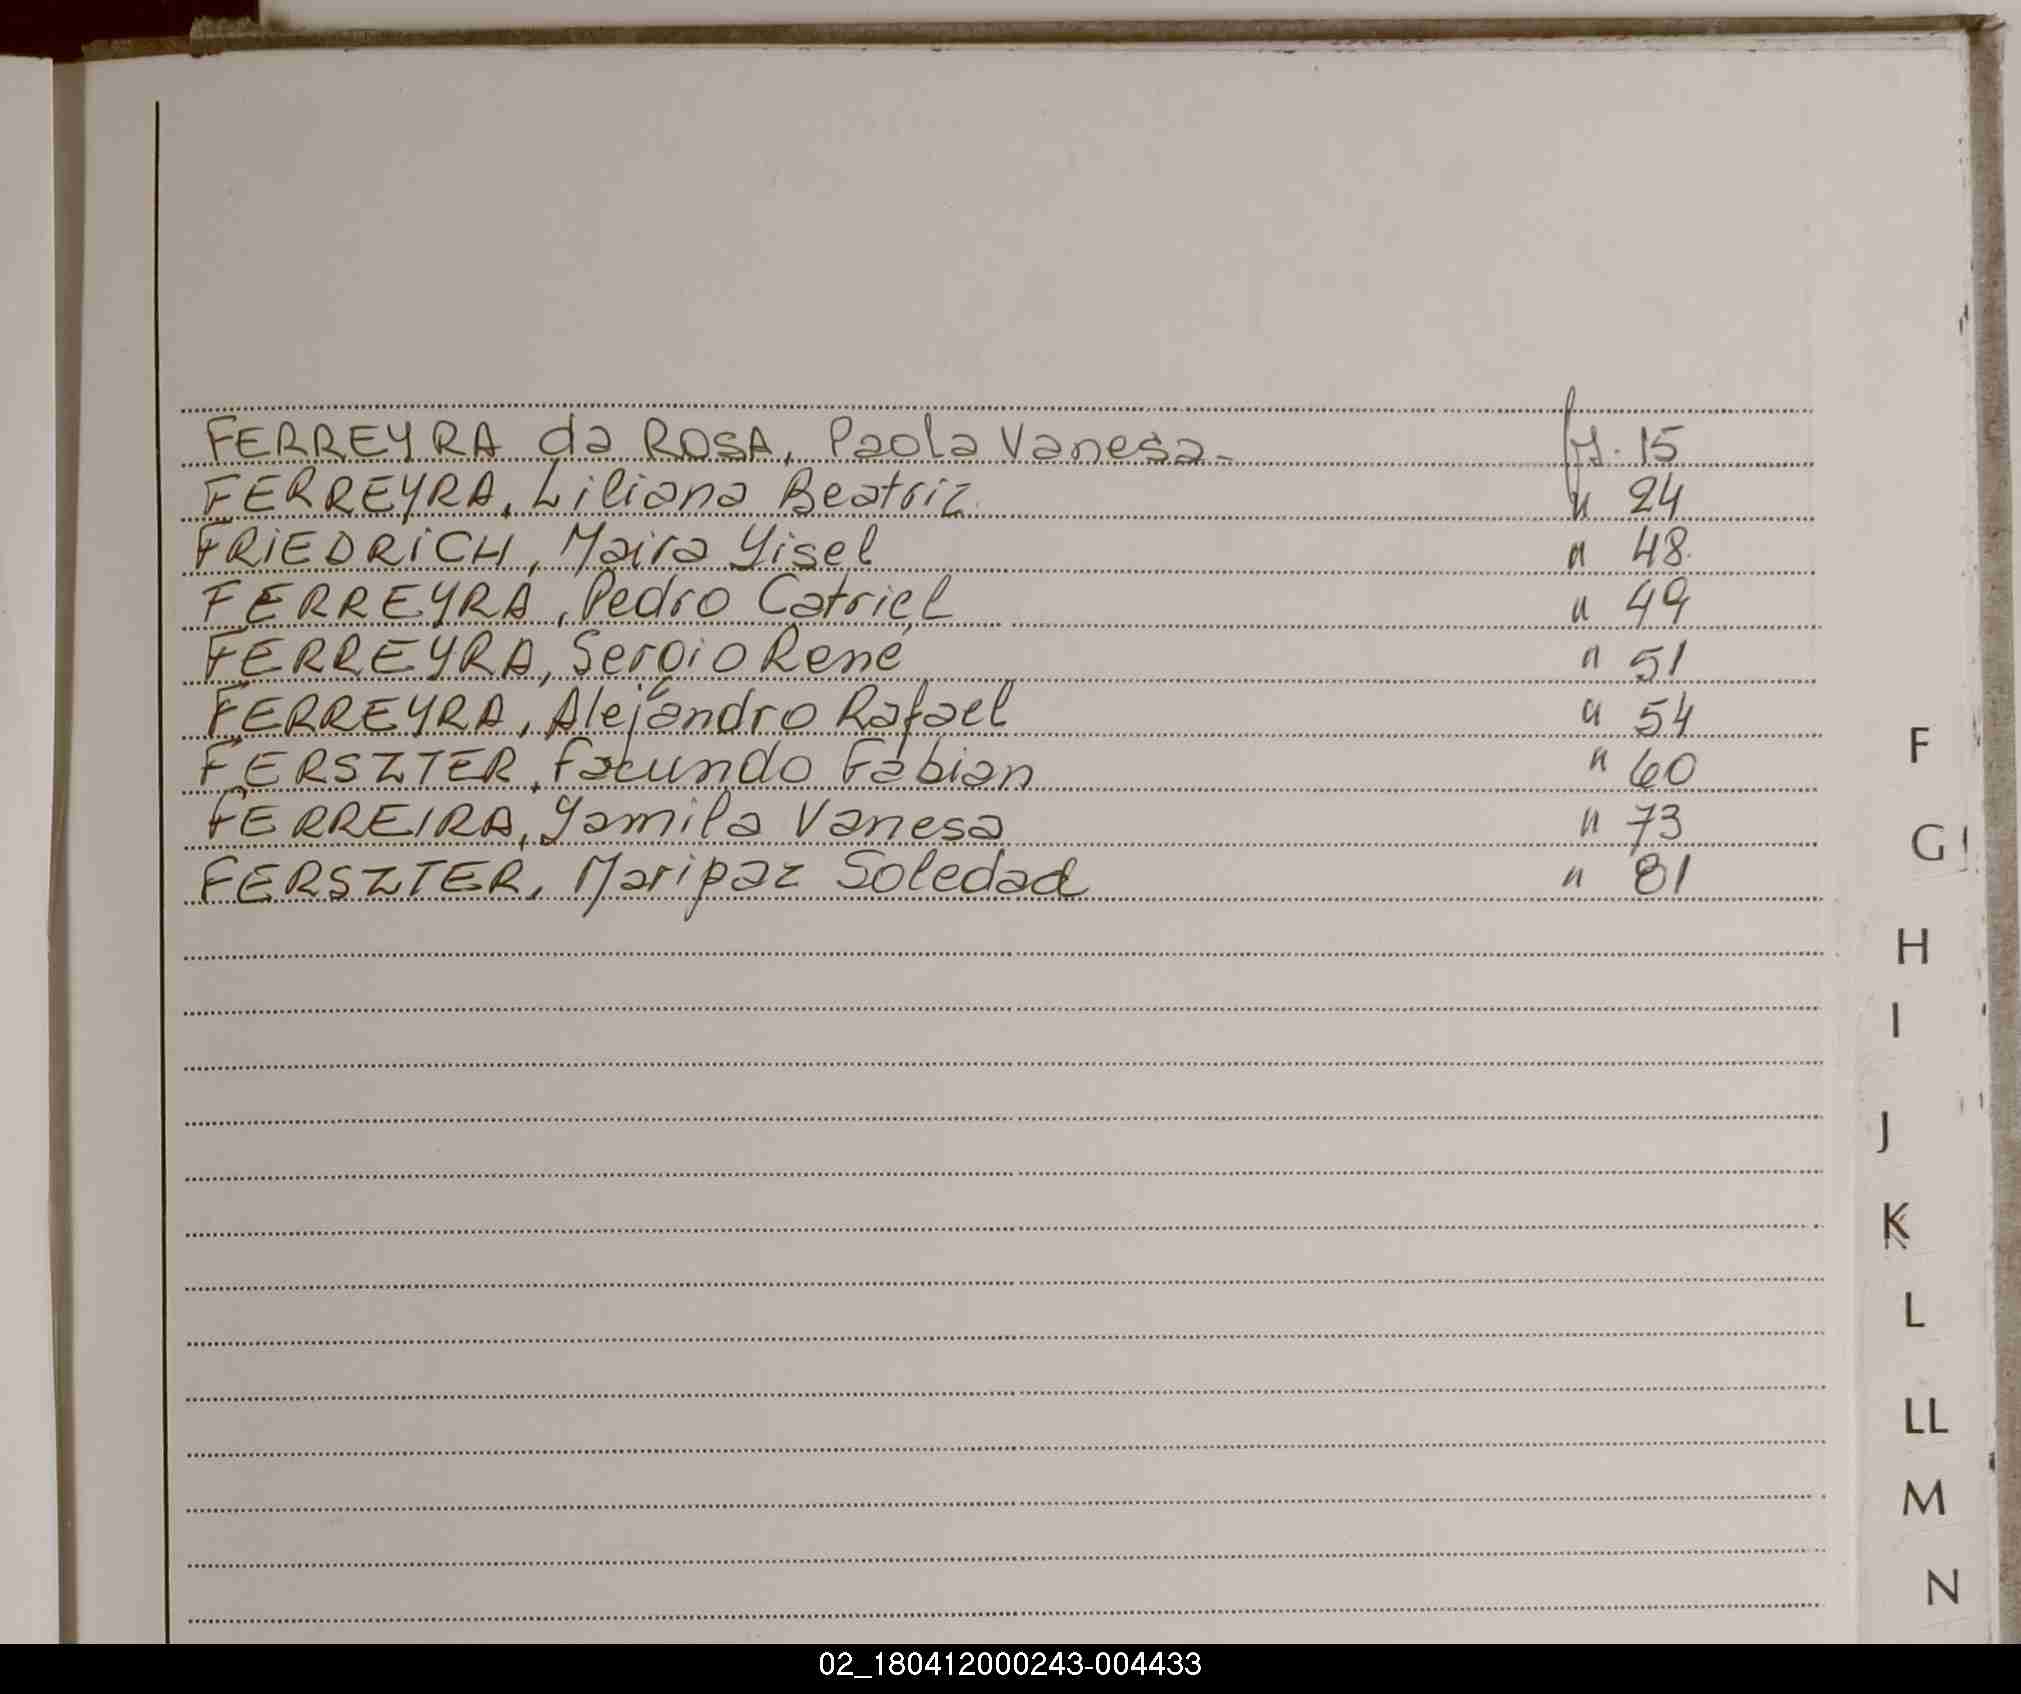 FERREYRA da ROSA, Paola Vanesa- fs. 15
FERREYRA, Liliana Beatriz " 24
FRIEDRICH, Maira Yisel " 48
FERREYRA, Pedro Catriel " 49
FERREYRA, Sergio René " 51
FERREYRA, Alejandro Rafael " 54
FERSZTER, Facundo Fabian " 60
FERREIRA, Yamila Vanesa " 73
FERSZTER, Maripaz Soledad " 81
F
G
H
I
J
K
L
LL
M
N
02_180412000243-004433